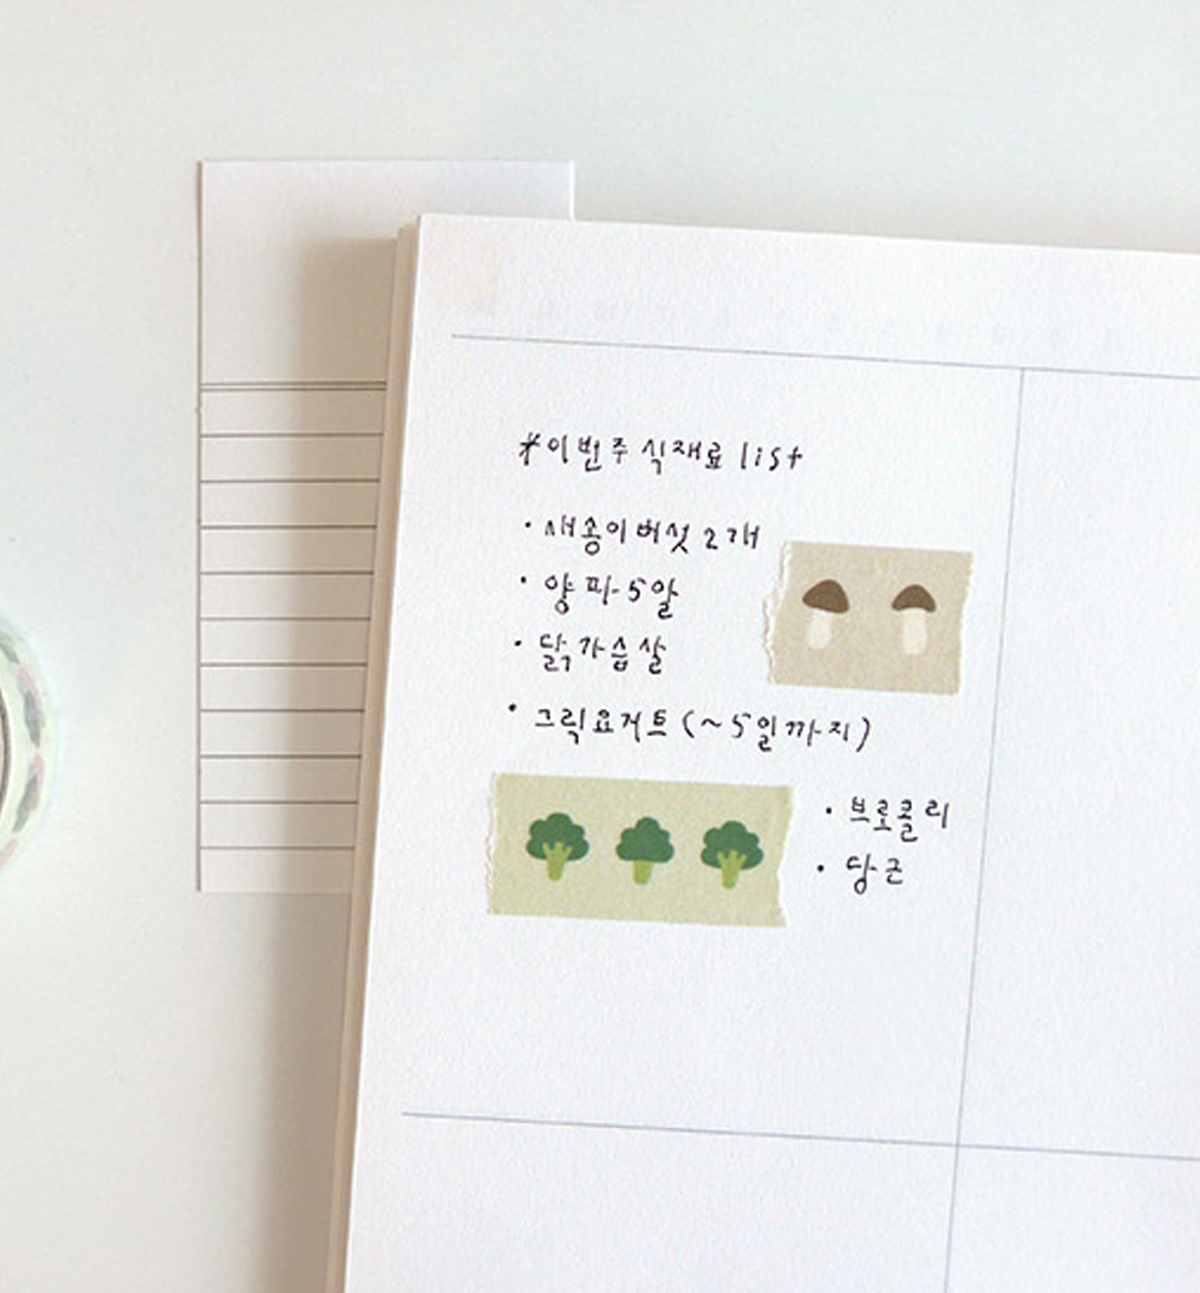 #이번주 식재료 list
· 새송이버섯 2개
· 양파 5알
· 닭가슴살
· 그릭요거트 (~5일까지)
· 브로콜리
· 당근